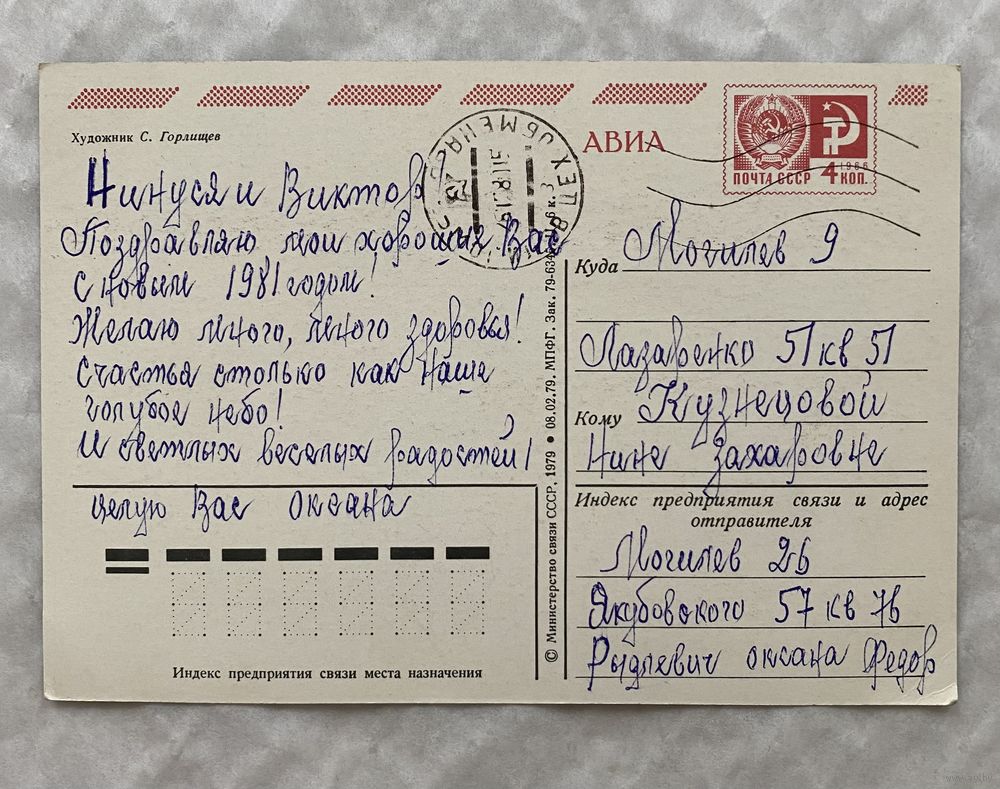 Художник С. Горлищев
АВИА
ПОЧТА СССР 4 КОП.
1966
Нинуся и Виктор
Поздравляю мои хороших Вас
С новым 1981 годом!
Желаю много, много здоровья!
Счастья столько как наше
голубое небо!
И светлых веселых радостей!
целую Вас Оксана
Индекс предприятия связи места назначения
© Министерство связи СССР, 1979 ● 08.02.79. МПФГ. Зак. 79-634
6 к. 3
ЦЕХ ОБМЕНА
Куда Могилев 9
Лазаренко 51 кв 51
Кому Кузнецовой
Нине Захаровне
Индекс предприятия связи и адрес
отправителя
Могилев 26
Якубовского 57 кв 76
Оксана Федор